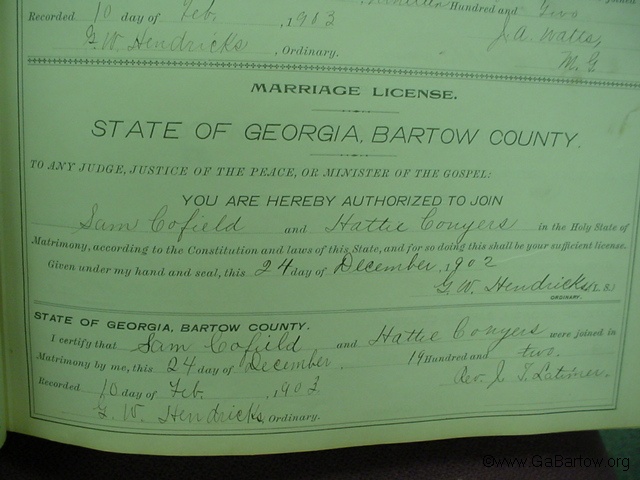 Hundred and Two
Recorded 10 day of Feb. , 1903
J. A. Walls,
G. W. Hendricks , Ordinary.
M. G
MARRIAGE LICENSE.
STATE OF GEORGIA, BARTOW COUNTY.
TO ANY JUDGE, JUSTICE OF THE PEACE, OR MINISTER OF THE GOSPEL:
YOU ARE HEREBY AUTHORIZED TO JOIN
Sam Cofield and Hattie Conyers in the Holy State of
Matrimony, according to the Constitution and laws of this State, and for so doing this shall be your sufficient license.
Given under my hand and seal, this 24 day of December, 1902
G. W. Hendricks (L. S.)
ORDINARY.
STATE OF GEORGIA, BARTOW COUNTY.
I certify that Sam Cofield and Hattie Conyers were joined in
Matrimony by me, this 24 day of December. 19 Hundred and two.
Recorded 10 day of Feb. , 1903 Rev. J. T. Latimer.
G. W. Hendricks, Ordinary.
©www.GaBartow.org